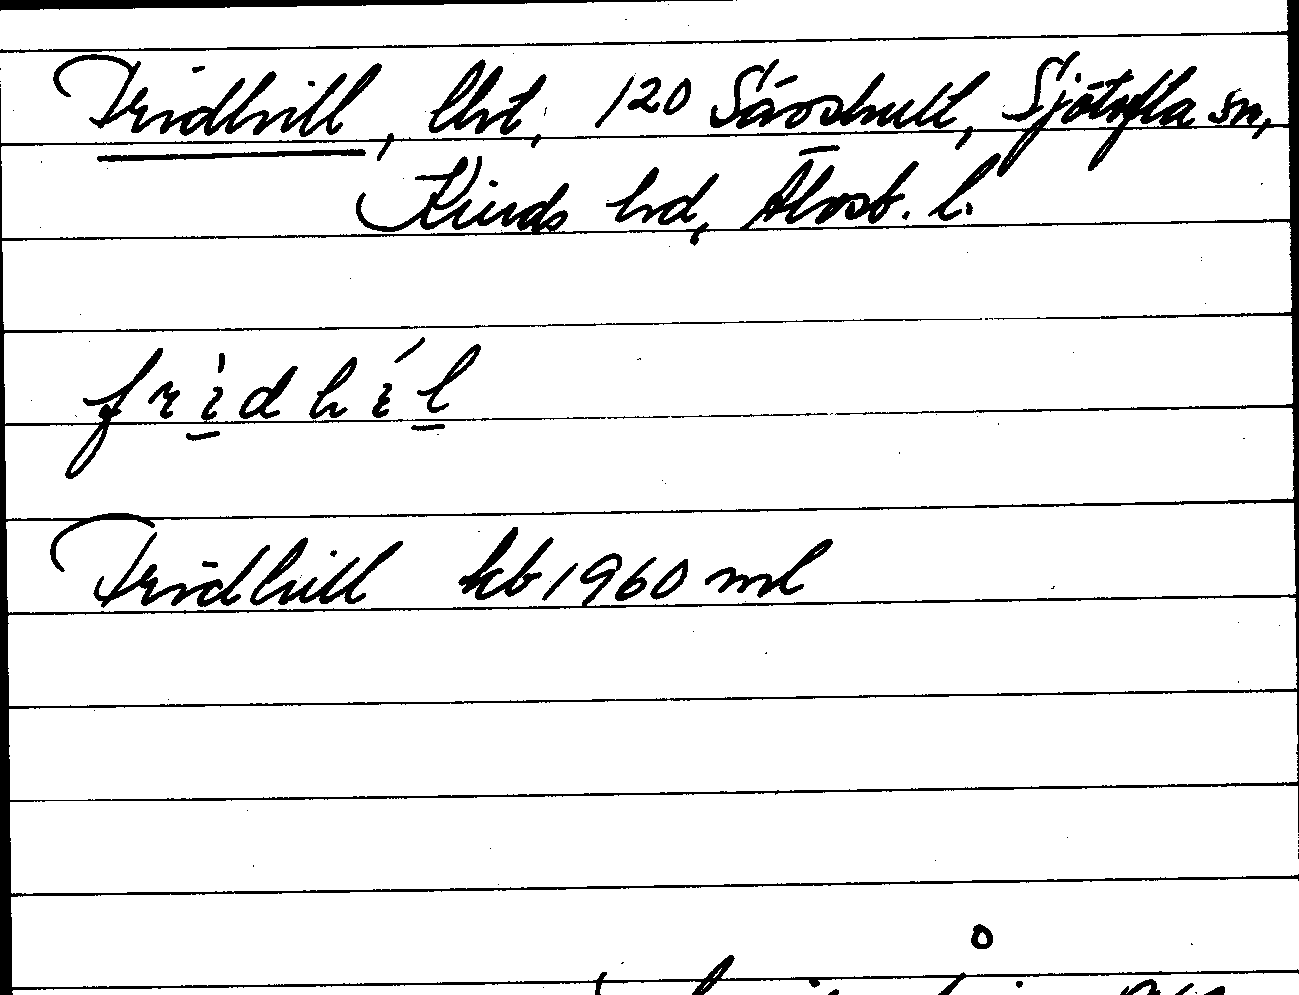 Fridhill, lht, 120 Säoshult, Sjötofta sn,
Kinds hd, Älvsb. l.
fridhil
Fridhill kb 1960 ml